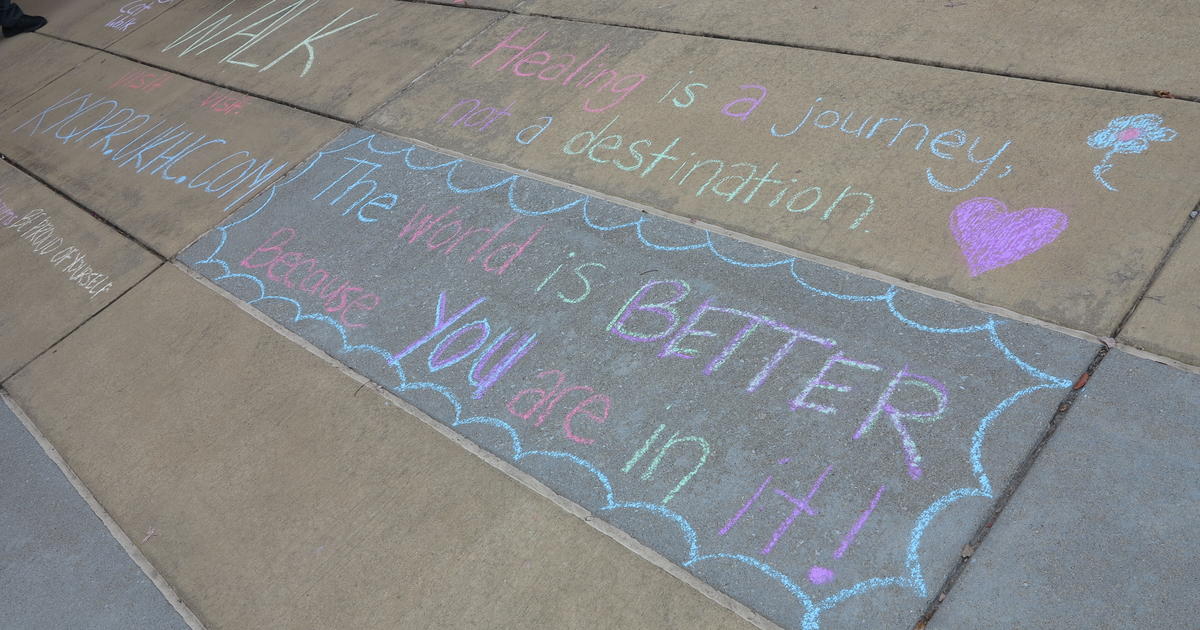 WALK
Healing is a journey,
not a destination.
VISIT
KYQPR.UKHC.COM
The World is BETTER
Because YOU are in it!
BE PROUD OF YOURSELF